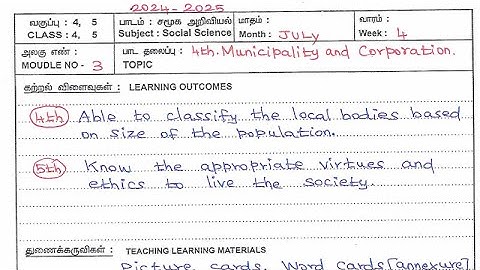 2024-2025
வகுப்பு : 4, 5 பாடம் : சமூக அறிவியல் மாதம் : வாரம் :
CLASS : 4, 5 Subject : Social Science Month : JULY Week : 4
அலகு எண் : பாட தலைப்பு : 4th. Municipality and Corporation.
MOUDLE NO - 3 TOPIC
கற்றல் விளைவுகள் : LEARNING OUTCOMES
4th Able to classify the local bodies based
on size of the population.
5th Know the appropriate virtues and
ethics to live the society.
துணைக்கருவிகள் : TEACHING LEARNING MATERIALS
Picture cards, Word cards [annexure]